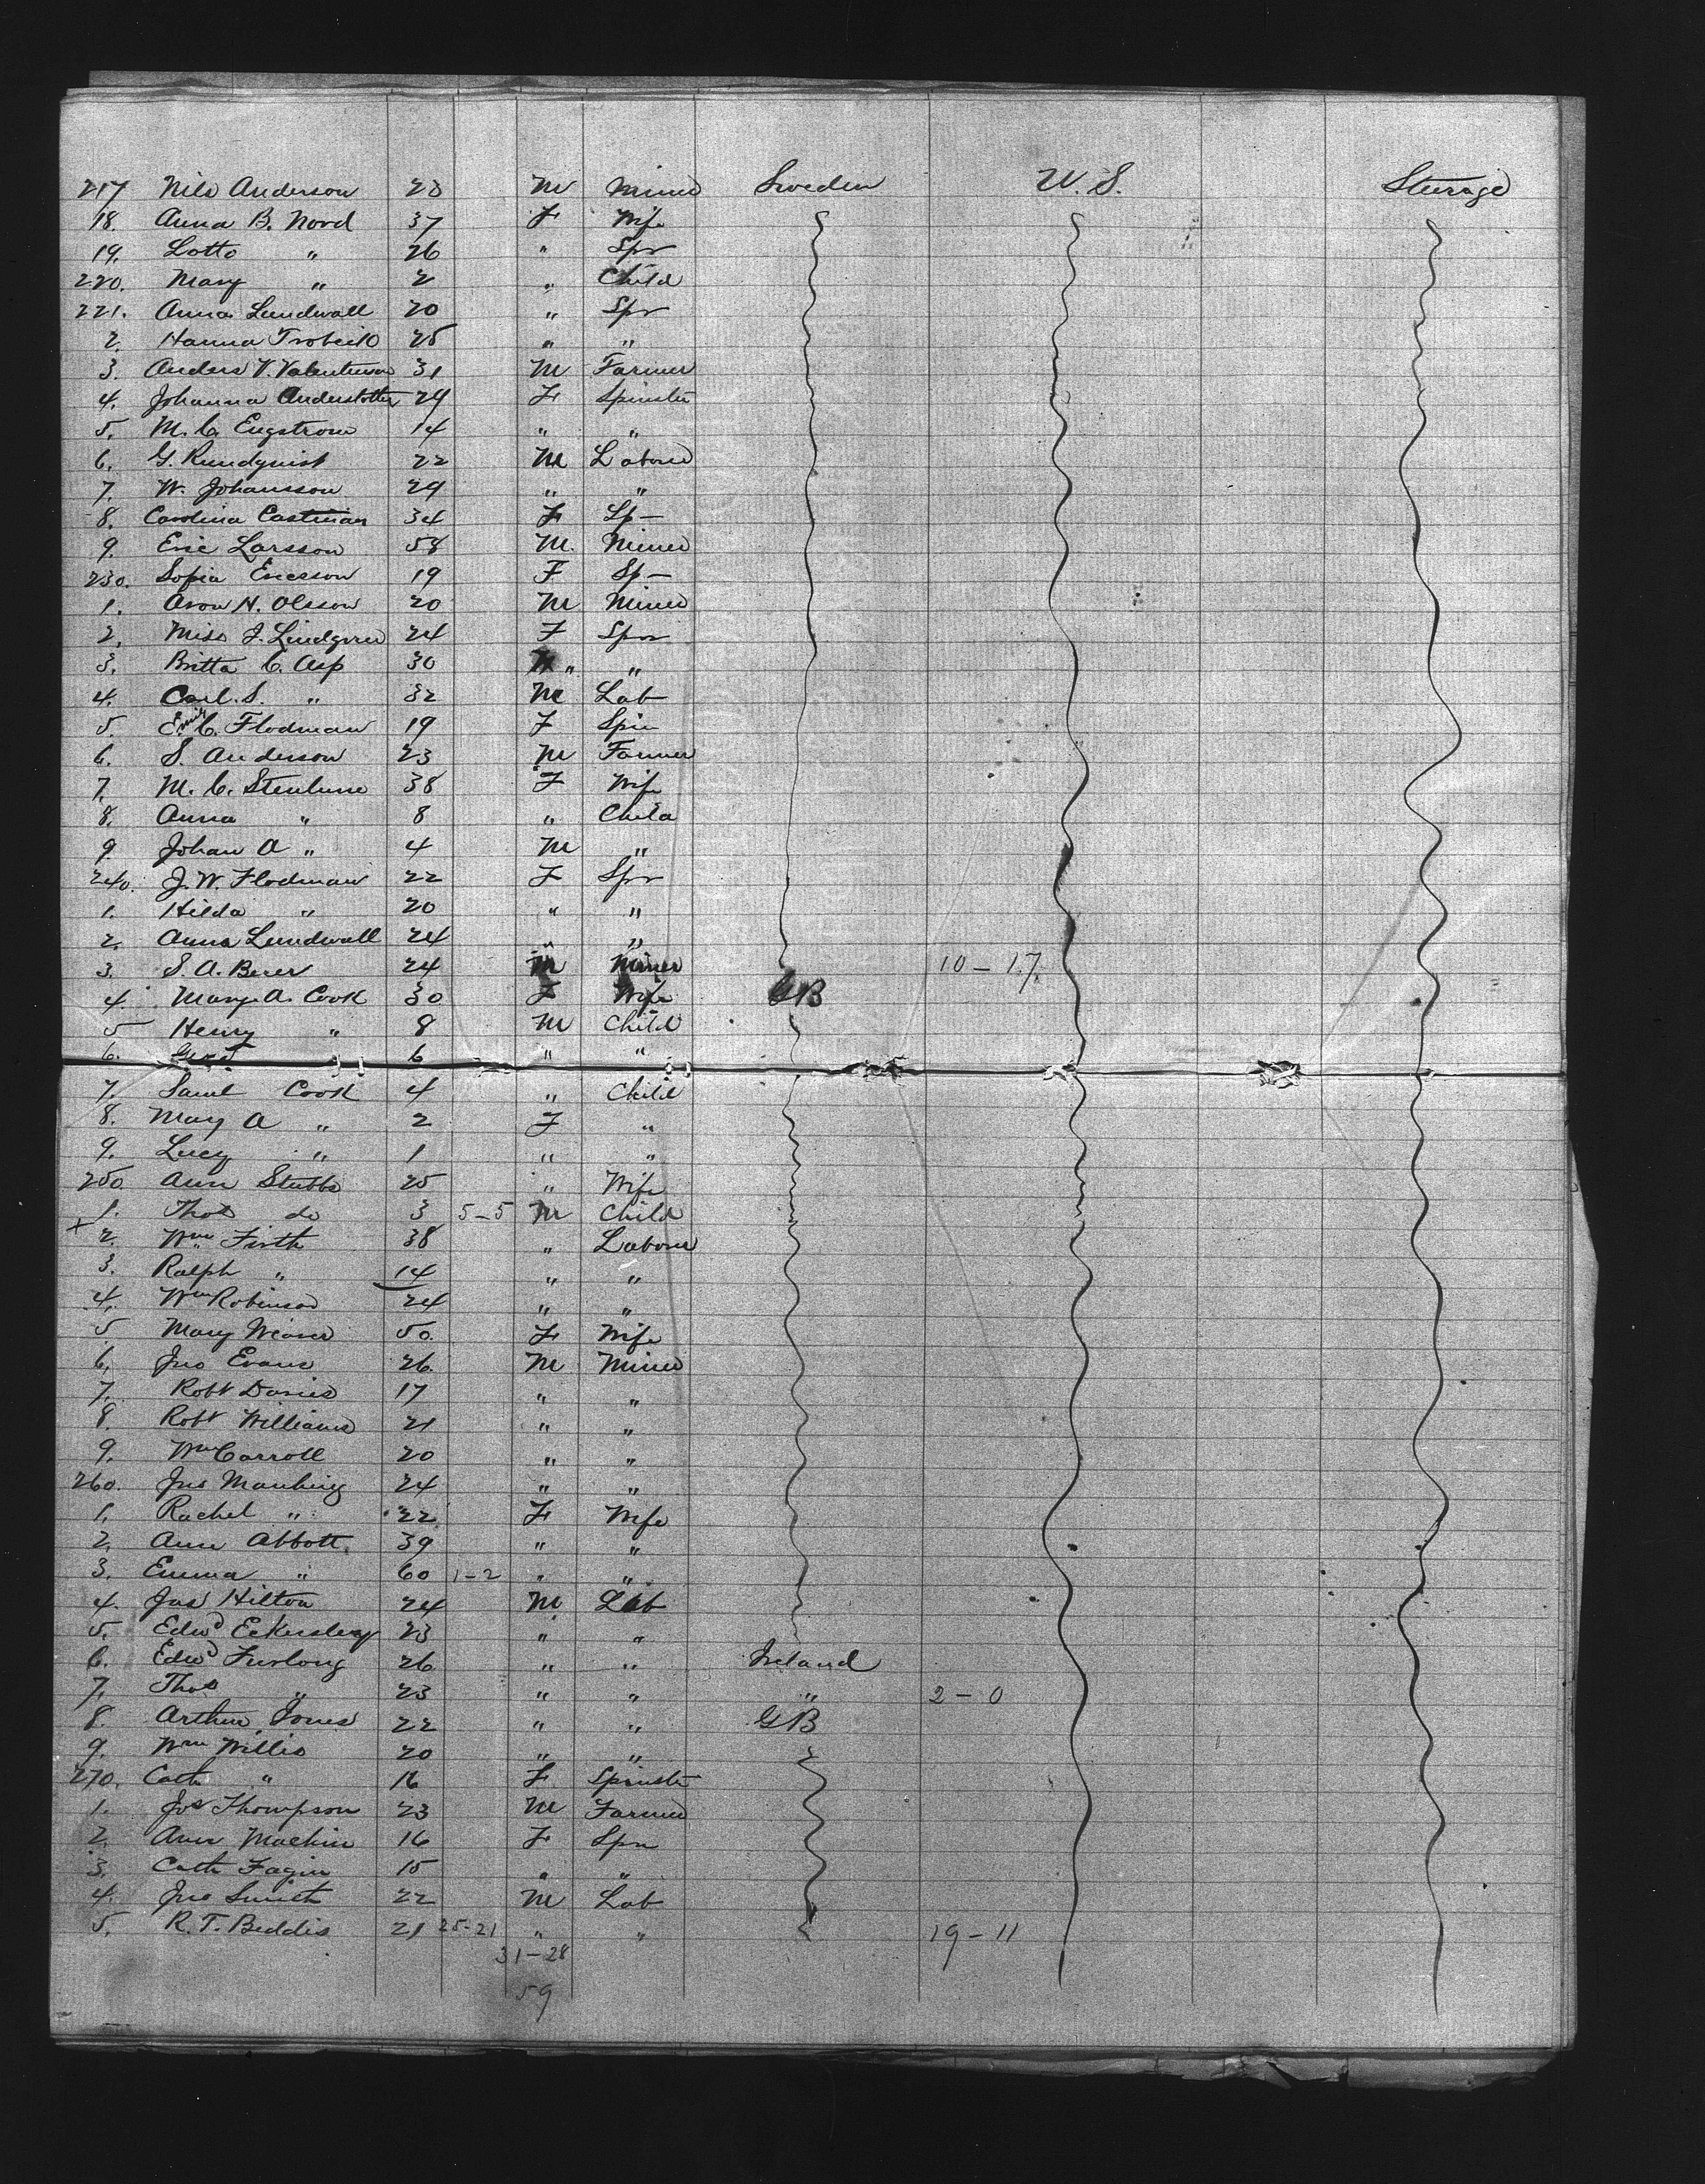 217 Nils Anderson 23 M Miner Sweden U.S. Steerage
18. Anna B. Nord 37 F Wife
19. Lotto " 26 " Spr
220. Mary " 2 " Child
221. Anna Lundwall 20 " Spr
2. Hanna 25 " "
3. Anders V. 31 M Farmer
4. Johanna 29 F Spinster
5. M. C. Engstrom 14 " "
6. G. Rundquist 22 M Laborer
7. W. Johansson 29 " "
8. Carolina Eastman 34 F Sp—
9. Eric Larsson 58 M. Miner
230. Sofia Ericsson 19 F Sp—
1. Aron N. Olsson 20 M Miner
2. Miss J. Lindgren 24 F Spr
3. Britta C. Asp 30 " "
4. Carl. S. " 32 M Lab
5. Emily C. Flodman 19 F Spin
6. S. Anderson 23 M Farmer
7. M. C. 38 F Wife
8. Anna " 8 " Child
9 Johan A " 4 M "
240. J. W. Flodman 22 F Spr
1. Hilda " 20 " "
2. Anna Lundwall 24 " "
3. S. A. 24 M Miner 10 – 17
4. Mary A. Cook 30 F Wife GB
5 Henry " 8 M Child
6. " 6 " "
7. Saml Cook 4 " Child
8. Mary A " 2 F "
9. Lucy " 1 " "
250 Ann Stubbs 25 " Wife
1. Thos do 3 5–5 M Child
x 2. Wm Firth 38 " Laborer
3. Ralph " 14 " "
4. Wm Robinson 24 " "
5 Mary Weaver 50. F Wife
6. Jno Evans 26 M Miner
7. Robt Davies 17 " "
8 Robt Williams 21 " "
9. Wm Carroll 20 " "
260. Jno Manning 24 " "
1. Rachel " 22 F Wife
2. Ann Abbott 39 " "
3. Emma " 60 1–2 " "
4. Jas Hilton 24 M Lab
5. Edwd Eckersley 23 " "
6. Edwd Furlong 26 " " Ireland
7. Thos " 23 " " " 2 – 0
8. Arthur Jones 22 " " GB
9. Wm Willis 20 " "
270. Cath " 16 F Spinster
1. Jos Thompson 23 M Farmer
2. Ann Machin 16 F Spn
3. Cath Fagin 15 " "
4. Jno Smith 22 M Lab
5. R. T. Beddis 21 25–21 " " 19 – 11
31–28
59